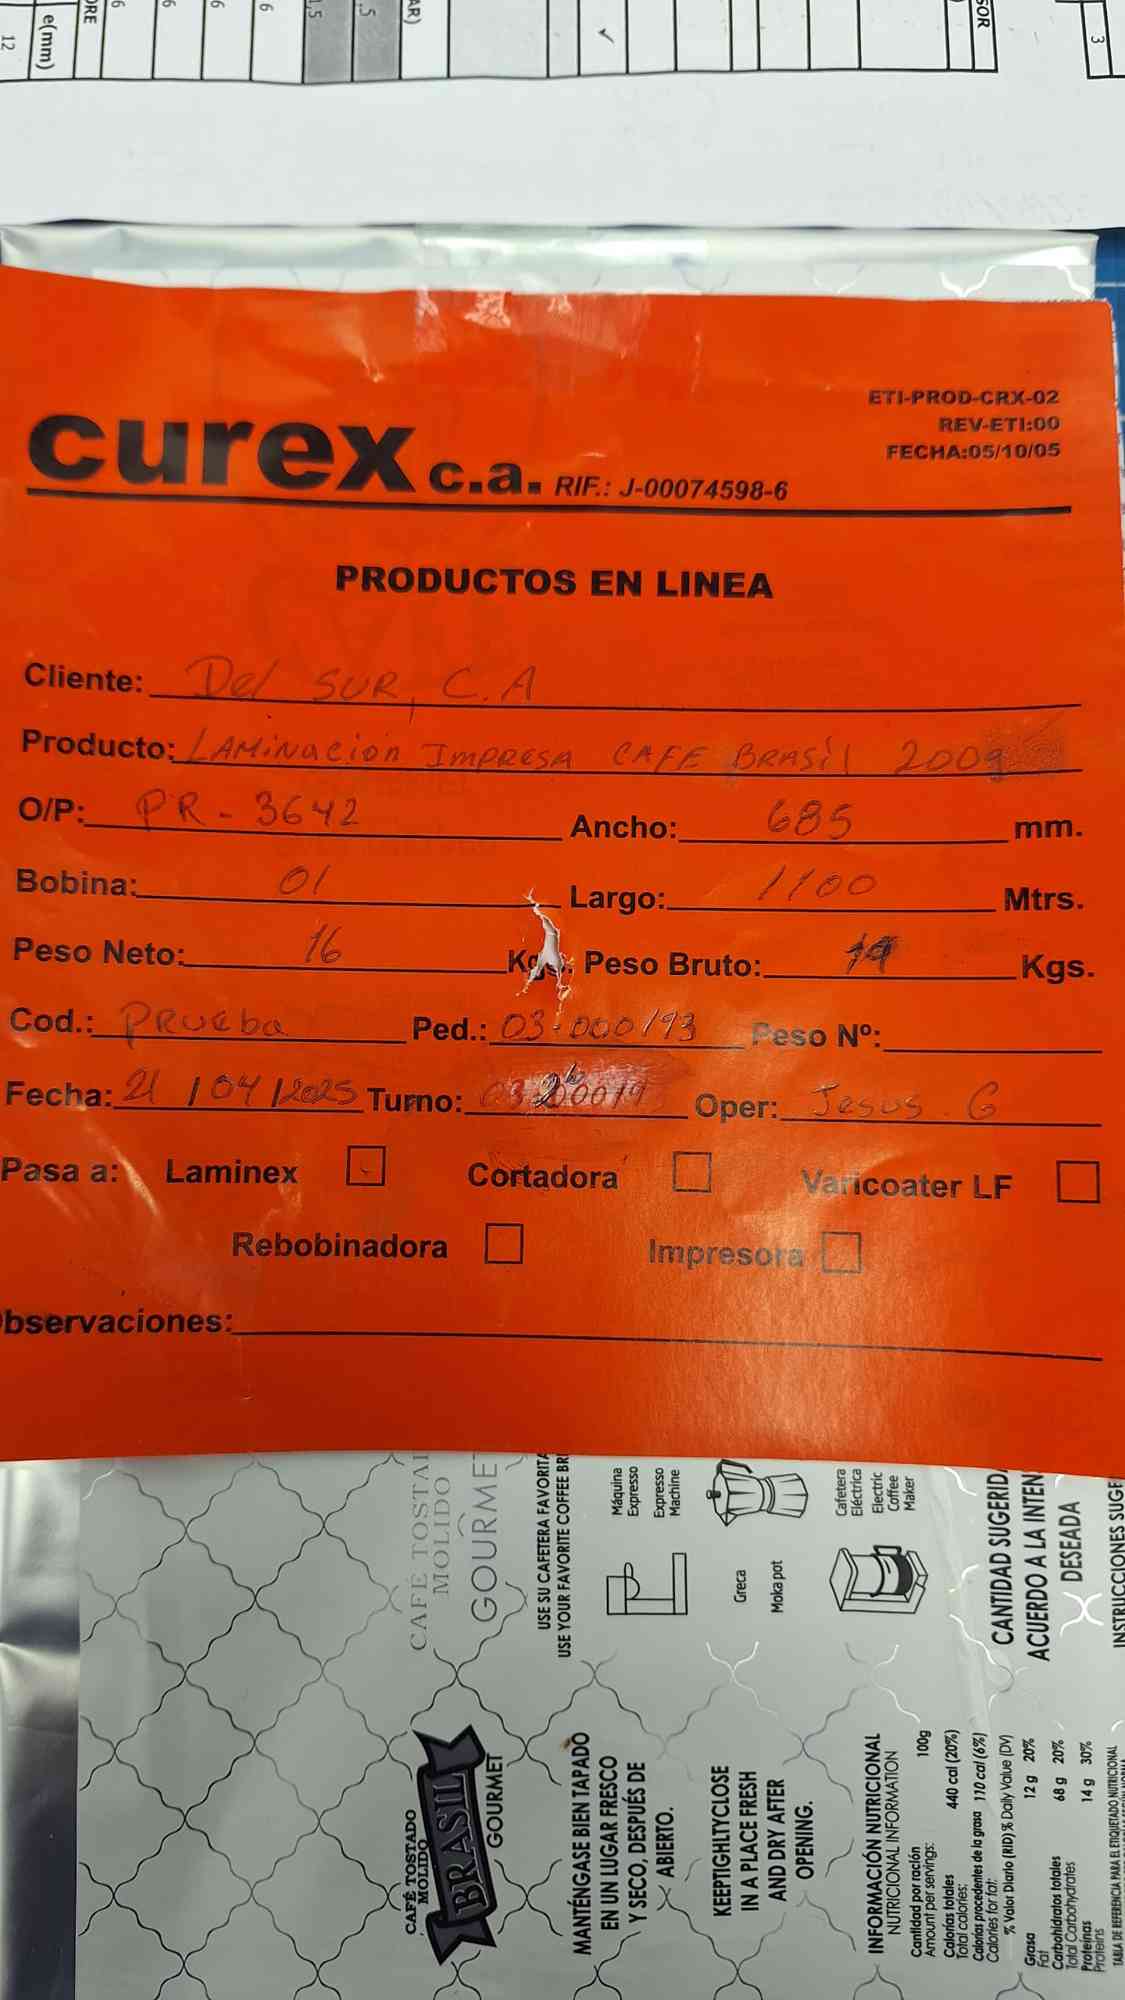 e(mm)
12
3
ETI-PROD-CRX-02
REV-ETI:00
FECHA:05/10/05
curex c.a. RIF.: J-00074598-6
PRODUCTOS EN LINEA
Cliente: Del SUR, C.A
Producto: LAMINACION IMPRESA CAFE BRASIL 200g
O/P: PR-3642 Ancho: 685 mm.
Bobina: 01 Largo: 1100 Mtrs.
Peso Neto: 16 Kgs. Peso Bruto: Kgs.
Cod.: PRUEba Ped.: 03-000193 Peso Nº:
Fecha: 21/04/2025 Turno: Oper: Jesus. G
Pasa a: Laminex Cortadora Varicoater LF
Rebobinadora Impresora
bservaciones:
CAFÉ TOSTA
MOLIDO
GOURME
USE SU CAFETERA FAVORITA
USE YOUR FAVORITE COFFEE BR
Máquina
Expresso
Expresso
Machine
Greca
Moka pot
Cafetera
Eléctrica
Electric
Coffee
Maker
CANTIDAD SUGERID
ACUERDO A LA INTEN
DESEADA
INSTRUCCIONES SUGE
CAFÉ TOSTADO
MOLIDO
BRASIL
GOURMET
MANTÉNGASE BIEN TAPADO
EN UN LUGAR FRESCO
Y SECO, DESPUÉS DE
ABIERTO.
KEEPTIGHLTYCLOSE
IN A PLACE FRESH
AND DRY AFTER
OPENING.
INFORMACIÓN NUTRICIONAL
NUTRICIONAL INFORMATION
Cantidad por ración 100g
Amount per servings:
Calorías totales 440 cal (20%)
Total calories:
Calorías procedentes de la grasa 110 cal (6%)
Calories for fat:
% Valor Diario (RID) % Daily Value (DV)
Grasa 12 g 20%
Fat
Carbohidratos totales 68 g 20%
Total Carbohydrates
Proteínas 14 g 30%
Proteins
TABLA DE REFERENCIA PARA EL ETIQUETADO NUTRICIONAL